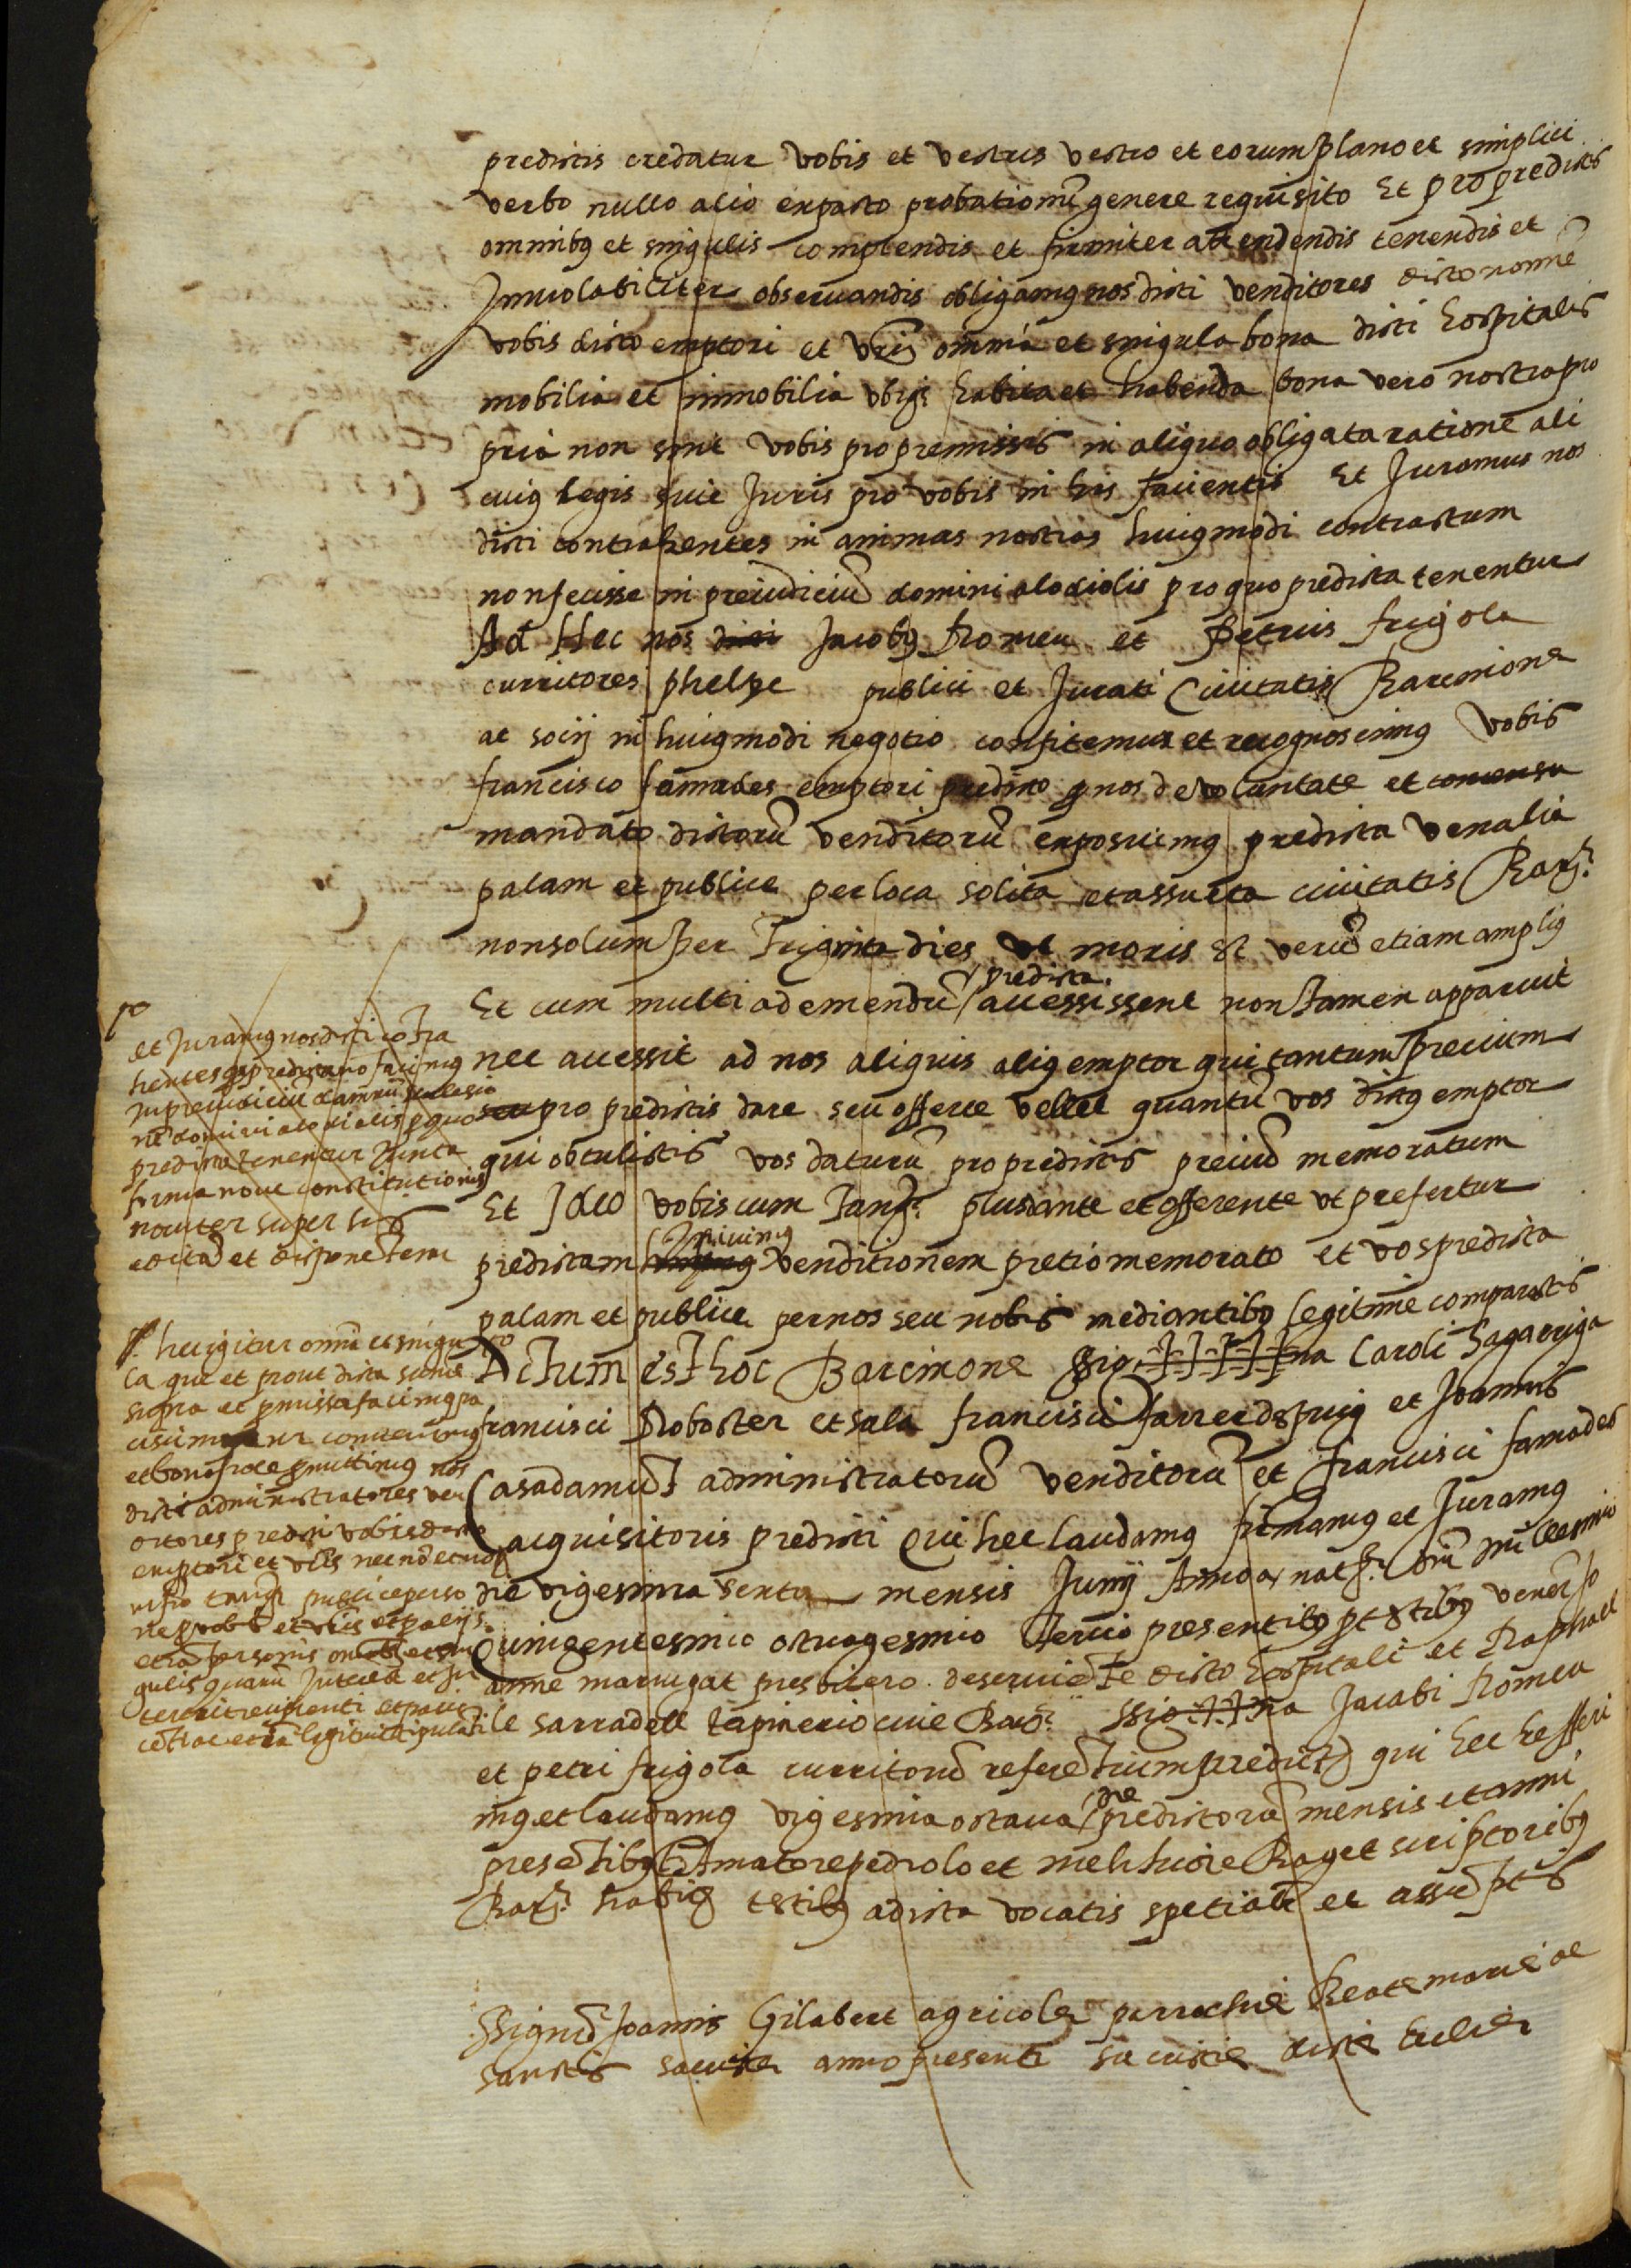 predictis credatur vobis et vestris vestro et eorum plano et simplici
verbo nullo alio expacto probationũ genere requisito Et pro predictis
omnibꝯ et singulis complendis et firmiter attendendis tenendis et
Inviolabiliter observandis obligamꝯ nos dicti venditores dicto nomine
vobis dicto emptori et vris omnia et singula bona dicti hospitalis
mobilia et immobilia ubiqꝫ habita et habenda bona vero nostra pro
pria non sint vobis pro premissis in aliquo obligata ratione ali
cuiꝯ legis sive Juris pro vobis in his facientis Et Juramus nos
dicti contrahentes in animas nostras huiꝯmodi contractum
non fecisse in preiudiciũ domini alodialis pro quo predicta tenentur
Ad Hec nos dicti Jacobꝯ Romeu et Petrus frigola
curritores phelpe publici et Jurati Civitatis Barcinone
ac socij in huiꝯmodi negotio confitemur et recognoscimꝯ vobis
francisco famades emptori predicto q nos de voluntate et
mandato dictorũ venditorũ exposuimꝯ predicta venalia
palam et publice per loca solita et assueta civitatis Barꝫ
non solum per Triginta dies ut moris est verũ etiam ampliꝯ
predicta
Et cum multi ad emendũ accessissent non Tamen apparuit
nec accessit ad nos aliquis aliꝯ emptor qui tantum precium
seu pro predictis dare seu offerre vellet quantũ vos dictꝯ emptor
qui obtulistis vos daturũ pro predictis preciũ memoratum
Et Ideo vobiscum Tanqꝫ plus dante et offerente ut prefertur
predictam venditionem pretio memorato et vos predicta
palam et publice per nos seu nobis mediantibꝯ legitime comparastis
Actum est hoc Barcinone Sig++++na Caroli Sagarriga
francisci Roboster et sala francisci farrer despuig et Joannis
Casadamũt administratorũ venditorũ et francisci famades
acquisitoris predicti Qui hec laudamꝯ firmamꝯ et Juramꝯ
die vigesima sexta mensis Junij Anno a natꝫ Dni millesimo
Quingentesimo octuagesimo Tertio presentibꝯ pr testibꝯ venerꝫ Jo
anne marrugat presbitero deserviẽte dicto hospitali et Raphael
le sarradell tapinerio cive Barꝫ Ssig++na Jacobi Romeu
et petri frigola curritorũ referẽtium predict qui hec refferi
die
mꝯ et laudamꝯ vigesima octava predictorũ mensis et anni
presẽtibꝯ Amatore pedrolo et melchiore Raget scriptoribꝯ
Barꝫ habitꝫ testibꝯ ad ista vocatis spetialr et assũptis
Ssignũ Joannis Gilabert agricole parrochie Beate marie de
sanctis anno presenti dicte
et Juramꝯ nos dicti cõtra
hentes q predicta nõ facimꝯ
In preiudiciũ damnũ
ne domini alodialis p quo
predicta tenentur Juncta
forma nove constitutionis
noviter super his
edita et disponetem
hec igitur omĩa et singu
la que et prout dicta sunt
supra et pmissa facimꝯ pa
ciscimur convenimꝯ
et bona fide pmittimꝯ nos
dicti administratores ven
ditores predicti vobis dicto
emptori et vris necnõ et nott
publice perso
ne p vobis et vris et
etiã personis omibꝯ et sin
gulis quarũ Interest et In
tererit recipienti et paus
cẽti ac etiã legitime stipulãti